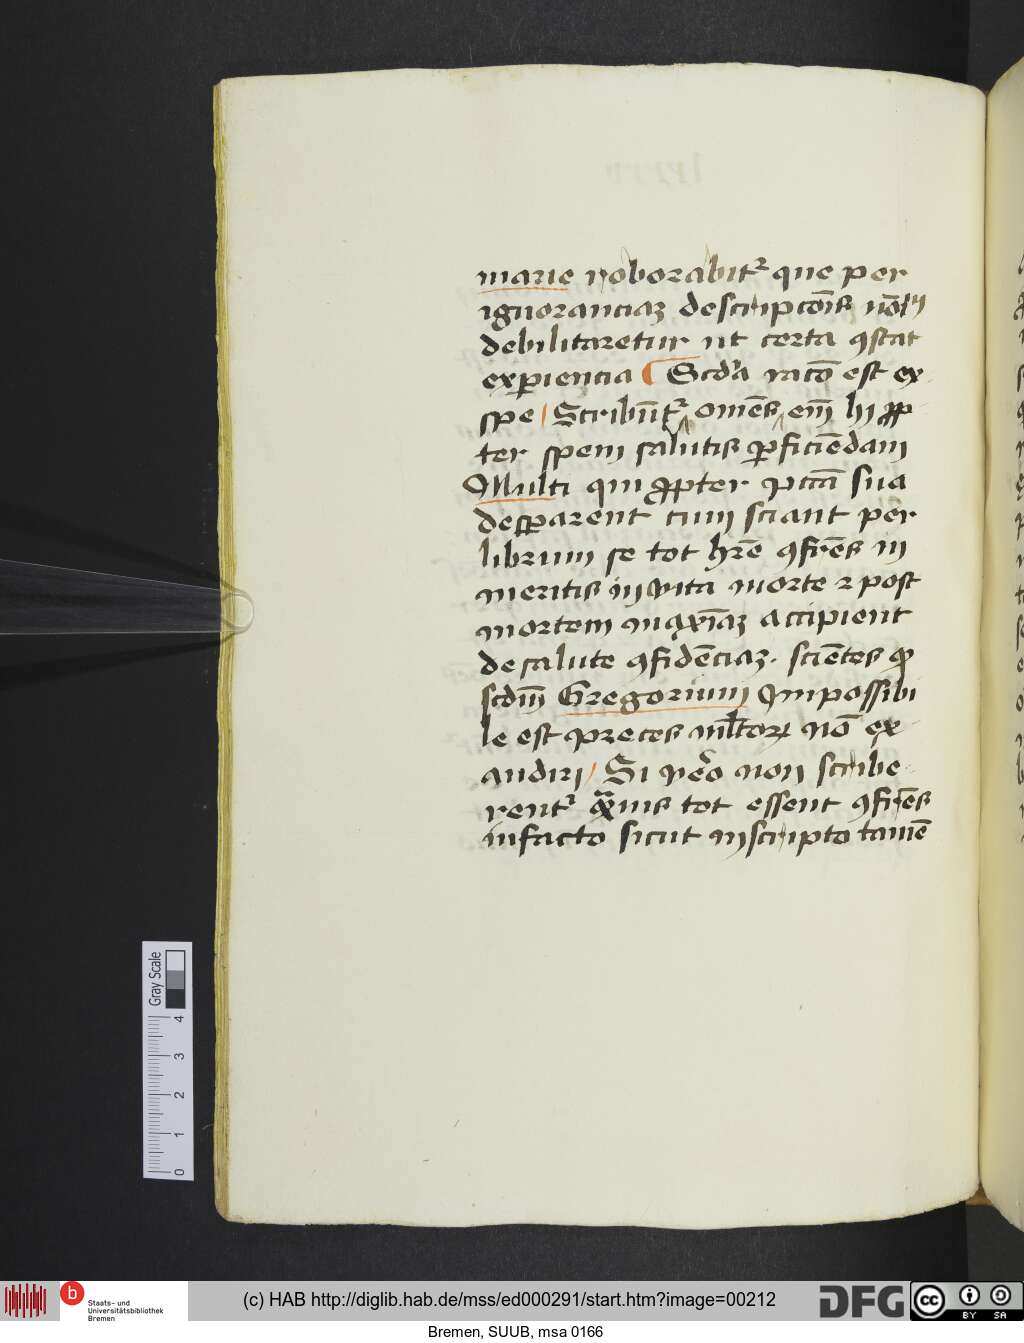 marie roborabit᷑ que per
ignoranciaꝫ descripcōis nō
debilitaretur ut certa ꝯstat
experiencia Scd̄a racō est ex
spe Scribūt᷑ omēs em̄ hij ꝓp
ter spem salutis ꝑficiēdam
Multi qui ꝓpter pccā sua
desꝑarent cum sciant per
librum se tot hr̄e ꝯfr̄es in
meritis in vita morte ⁊ post
mortem maxīaꝫ accipient
de salute ꝯfidēciaꝫ. sciētes ꝙ
scdm̄ Gregorium Impossibi
le est preces ml̄toꝝ nō ex
audiri Si vēo non scribe
rent᷑ qͣuis tot essent ꝯfr̄es
in facto sicut in scripto tamē
Gray Scale
0 1 2 3 4
b
Staats- und
Universitätsbibliothek
Bremen
(c) HAB http://diglib.hab.de/mss/ed000291/start.htm?image=00212
DFG
cc
BY SA
Bremen, SUUB, msa 0166